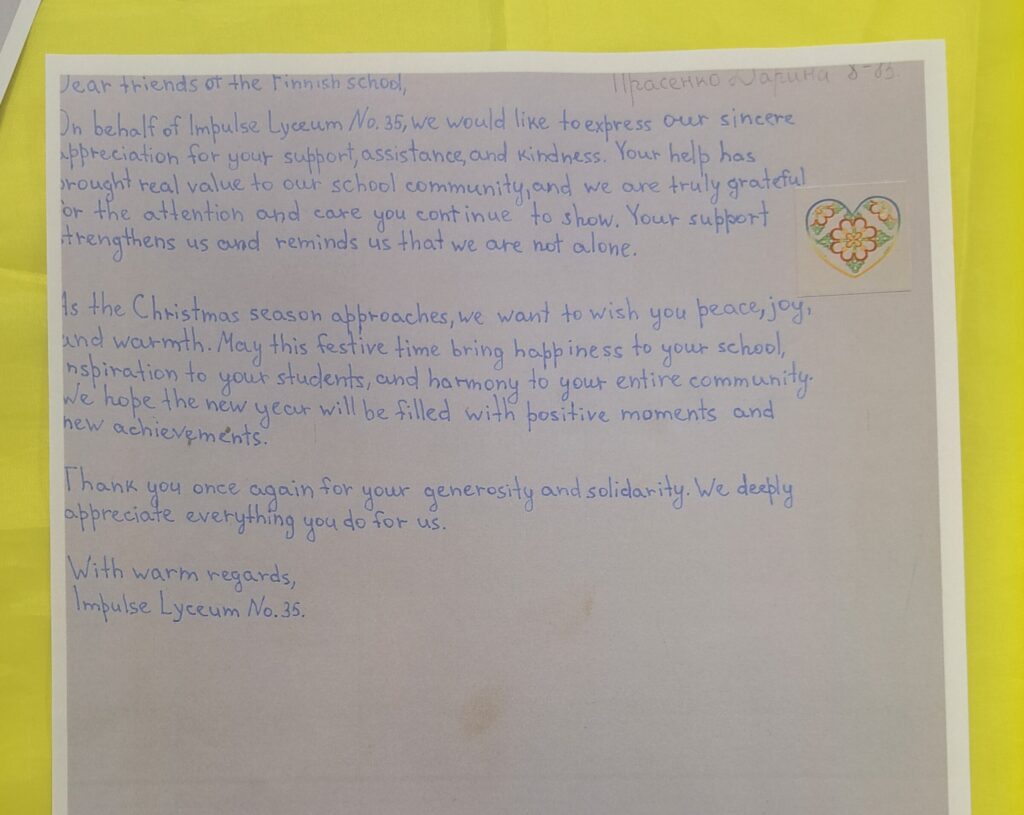 Dear friends of the Finnish school,
Прасенко Дарина 8-
On behalf of Impulse Lyceum No. 35, we would like to express our sincere
appreciation for your support, assistance, and kindness. Your help has
brought real value to our school community, and we are truly grateful
for the attention and care you continue to show. Your support
strengthens us and reminds us that we are not alone.
As the Christmas season approaches, we want to wish you peace, joy,
and warmth. May this festive time bring happiness to your school,
inspiration to your students, and harmony to your entire community.
We hope the new year will be filled with positive moments and
new achievements.
Thank you once again for your generosity and solidarity. We deeply
appreciate everything you do for us.
With warm regards,
Impulse Lyceum No. 35.